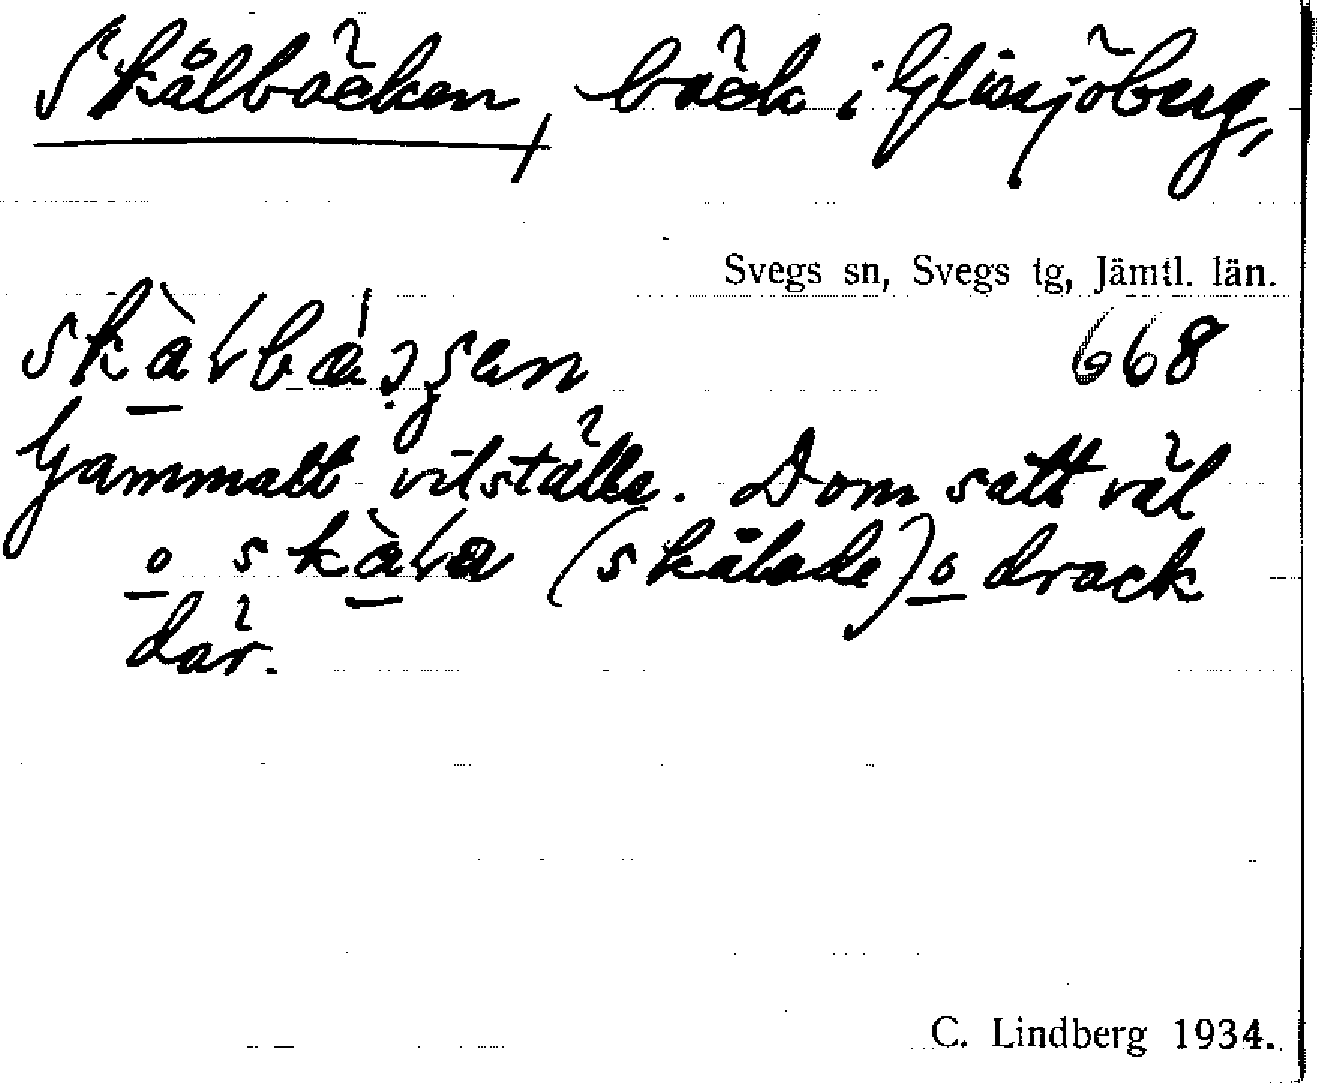 Skålbäcken, bäck i Glissjöberg,
Svegs sn, Svegs tg, Jämtl. län.
668
Gammalt vilställe. Dom satt väl
o skàla (skålade) o drack
där.
C. Lindberg 1934.